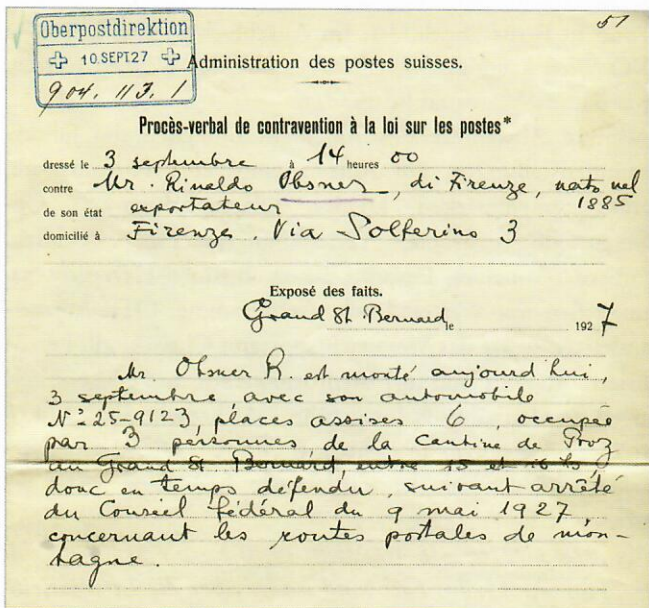 51
Oberpostdirektion
10.SEPT 27
904. 113. 1
Administration des postes suisses.
Procès-verbal de contravention à la loi sur les postes*
dressé le 3 septembre à 14 heures 00
contre Mr. Rinaldo Obsner, di Firenze, nato nel
1885
de son état exportateur
domicilié à Firenze. Via Solferino 3
Exposé des faits.
Grand St Bernard le 1927
Mr. Obsner R. est monté aujourd'hui,
3 septembre, avec son automobile
No 25-9123, places assises 6, occupée
par 3 personnes, de la Cantine de Proz
au Grand St. Bernard, entre 15 et 16 hs,
donc en temps défendu, suivant arrêté
du Conseil fédéral du 9 mai 1927
concernant les routes postales de mon-
tagne.